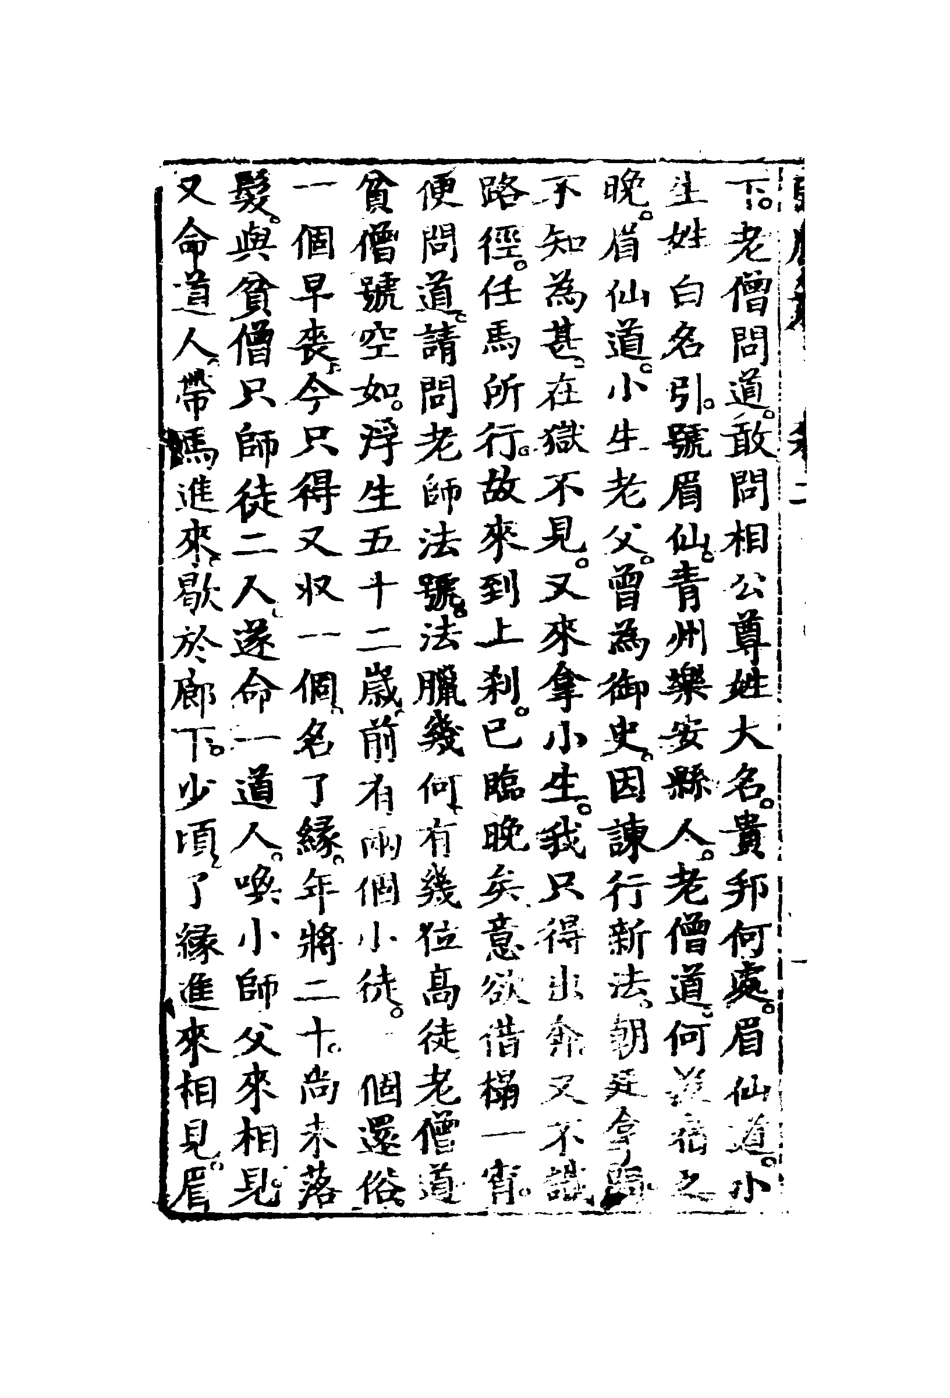 下。老僧問道。敢問相公尊姓大名。貴邦何處。眉仙道。小
生姓白名引。號眉仙。青州樂安縣人。老僧道。何 之
晚。眉仙道。小生老父。曾為御史。因諫行新法。朝廷拿歸
不知為甚。在獄不見。又來拿小生。我只得出奔又不識
路徑。任馬所行。故來到上刹。已臨晚矣意欲借榻一宵。
便問道。請問老師法號。法臘幾何。有幾位高徒老僧道
貧僧號空如。浮生五十二歲。前有兩個小徒。 個還俗。
一個早喪。今只得又収一個。名了緣。年將二十。尚未落
髮。與貧僧只師徒二人。遂命一道人。喚小師父來相見。
又命道人。帶馬進來。歇於廊下。少頃。了緣進來相見。眉